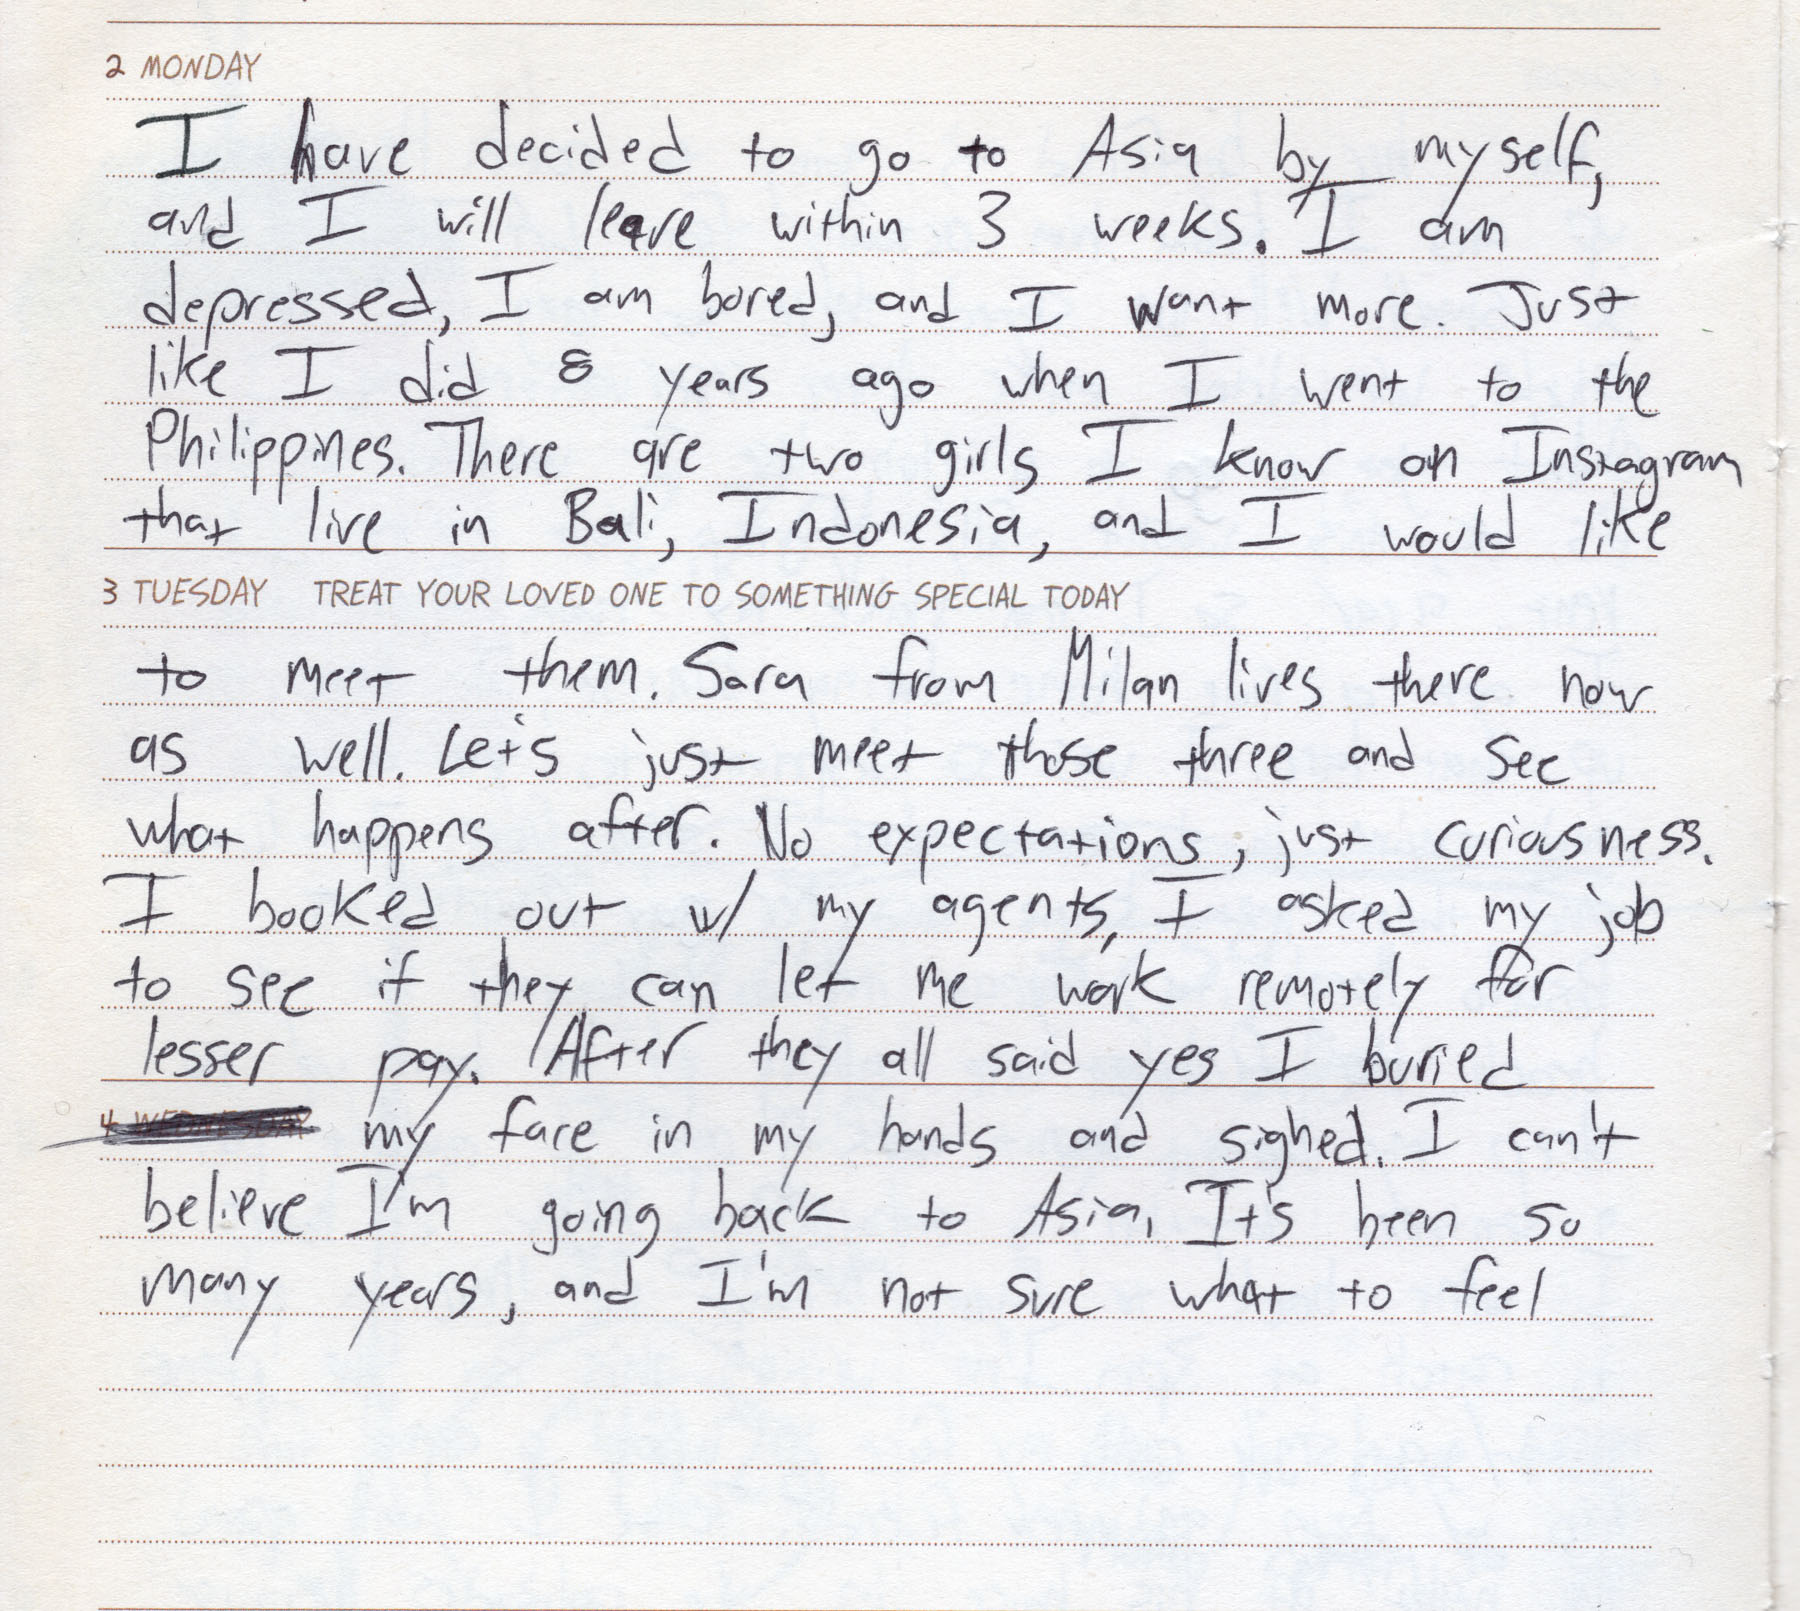 2 MONDAY
I have decided to go to Asia by myself,
and I will leave within 3 weeks. I am
depressed, I am bored, and I want more. Just
like I did 8 years ago when I went to the
Philippines. There are two girls I know on Instagram
that live in Bali, Indonesia, and I would like
3 TUESDAY TREAT YOUR LOVED ONE TO SOMETHING SPECIAL TODAY
to meet them. Sara from Milan lives there now
as well. Let's just meet those three and see
what happens after. No expectations, just curiousness.
I booked out w/ my agents, I asked my job
to see if they can let me work remotely for
lesser pay. After they all said yes I buried
4 WEDNESDAY my face in my hands and sighed. I can't
believe I'm going back to Asia. It's been so
many years, and I'm not sure what to feel